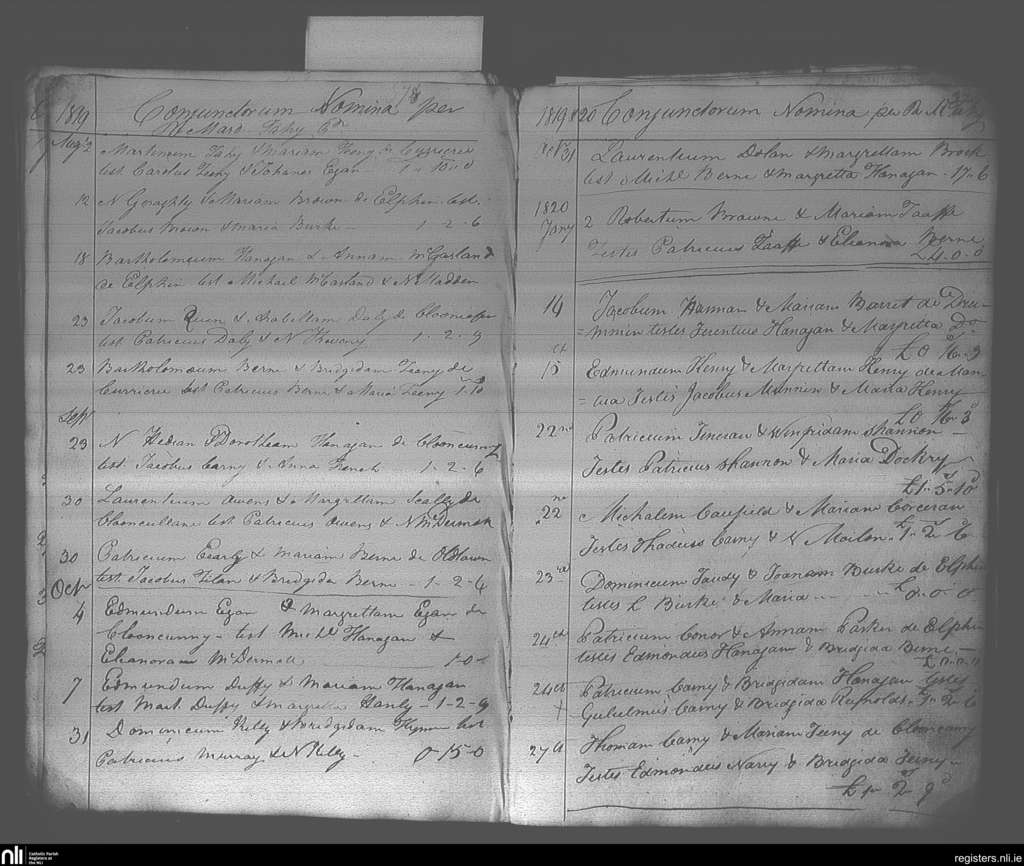 1819 Conjunctorum Nomina per
Augt 2 Martinum Fahy & Mariam Feeny de Curricree
test Carolus Feeny & Johanes Egan 1-10-0
12 N Geraghty & Mariam Brown de Elphin test
Jacobus Brown & Maria Burke 1-2-6
18 Bartholomeum Flanagan & Annam McGarland
de Elphin test Michael McGarland & N Madden
23 Jacobum & Arabellam Daly de
test Patricius Daly & N 1-2-9
23 Bartholomaum Berne & Bridgidam Feeny de
Curricree test Patricius Berne & Maria Feeny 1-10
Sept
29 N Hedian & Dorotheam Flanagan de Clooncunny
test Jacobus Carny & Anna French 1-2-6
30 Laurentium Owens & Margrettam Scally de
Clooncullane test Patricius Owens & N McDermott
30 Patricium & Mariam Berne de Oldtown
Octr test Jacobus & Bridgida Berne - 1-2-6
4 Edmundum Egan & Margrettam Egan de
Clooncunny - test Michl Flanagan &
Elianoram McDermott
7 Edmundum Duffy & Mariam Flanagan
test Mart Duffy & Margretta Hanly - 1-2-9
31 Dominicum Kelly & Bridgidam Flynn test
Patricius Murray & N Kelly - 0-15-0
1819 & 20 Conjunctorum Nomina per
31 Laurentium Dolan & Margrettam Brock
test Michl Berne & Margretta Flanagan - 17-6
1820
Jany 2 Robertum Browne & Mariam Taaffe
Testes Patricius Taaffe & Elianora Berne
14 Jacobum & Mariam Barret de Drum
=mnin testes Terentius Flanagan & Margretta Do
15th Edmundum Henry & Margrettam Henry de Man
=tua Testes Jacobus Mannin & Maria Henry
£0 16 3
22nd Patricium & Winifridam Shannon -
Testes Patricius Shannon & Maria Dockry
£1-5-10
22nd Michalem Caufield & Mariam Corceran
Testes Thadeus Carny & N Moilon £1-2-6
23rd Dominicum & Joanam Burke de Elphin
testes L Burke & Maria £0-0-0
24th Patricium Conor & Annam Parker de Elphin
testes Edmondus Flanagan & Bridgida Berne -
£0-0-0
24th Patricium Carny & Bridgidam Flanagan Testes
+ Gulielmus Carny & Bridgida Reynolds - 1-2-6
27th Thomam Carny & Mariam Feeny de Clooncunny
Testes Edmondus Narry & Bridgida Feeny -
£1-2-9
nli
Catholic Parish
Registers at
the NLI
registers.nli.ie